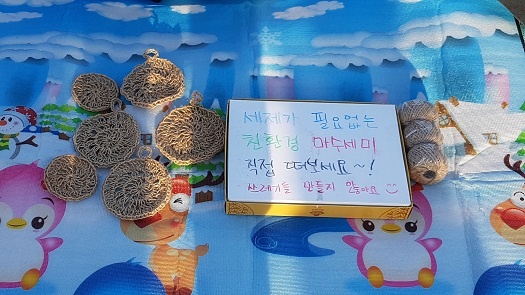 세제가 필요없는
친환경 마수세미
직접 떠보세요~!
쓰레기를 만들지 않아요